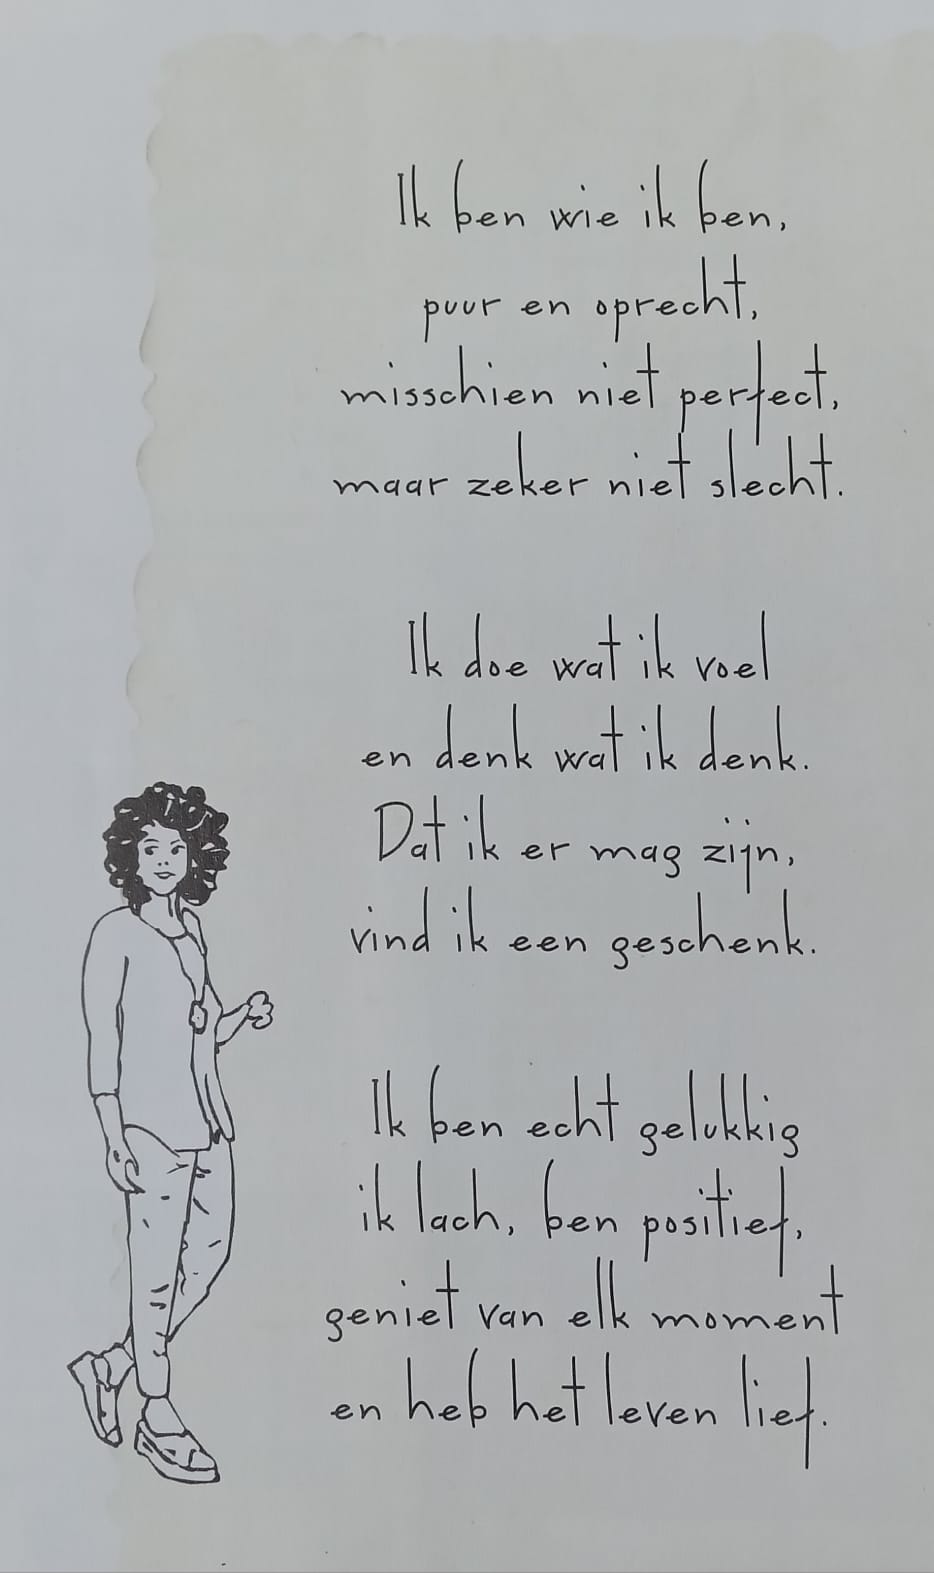 Ik ben wie ik ben,
puur en oprecht,
misschien niet perfect,
maar zeker niet slecht.
Ik doe wat ik voel
en denk wat ik denk.
Dat ik er mag zijn,
vind ik een geschenk.
Ik ben echt gelukkig
ik lach, ben positief,
geniet van elk moment
en heb het leven lief.